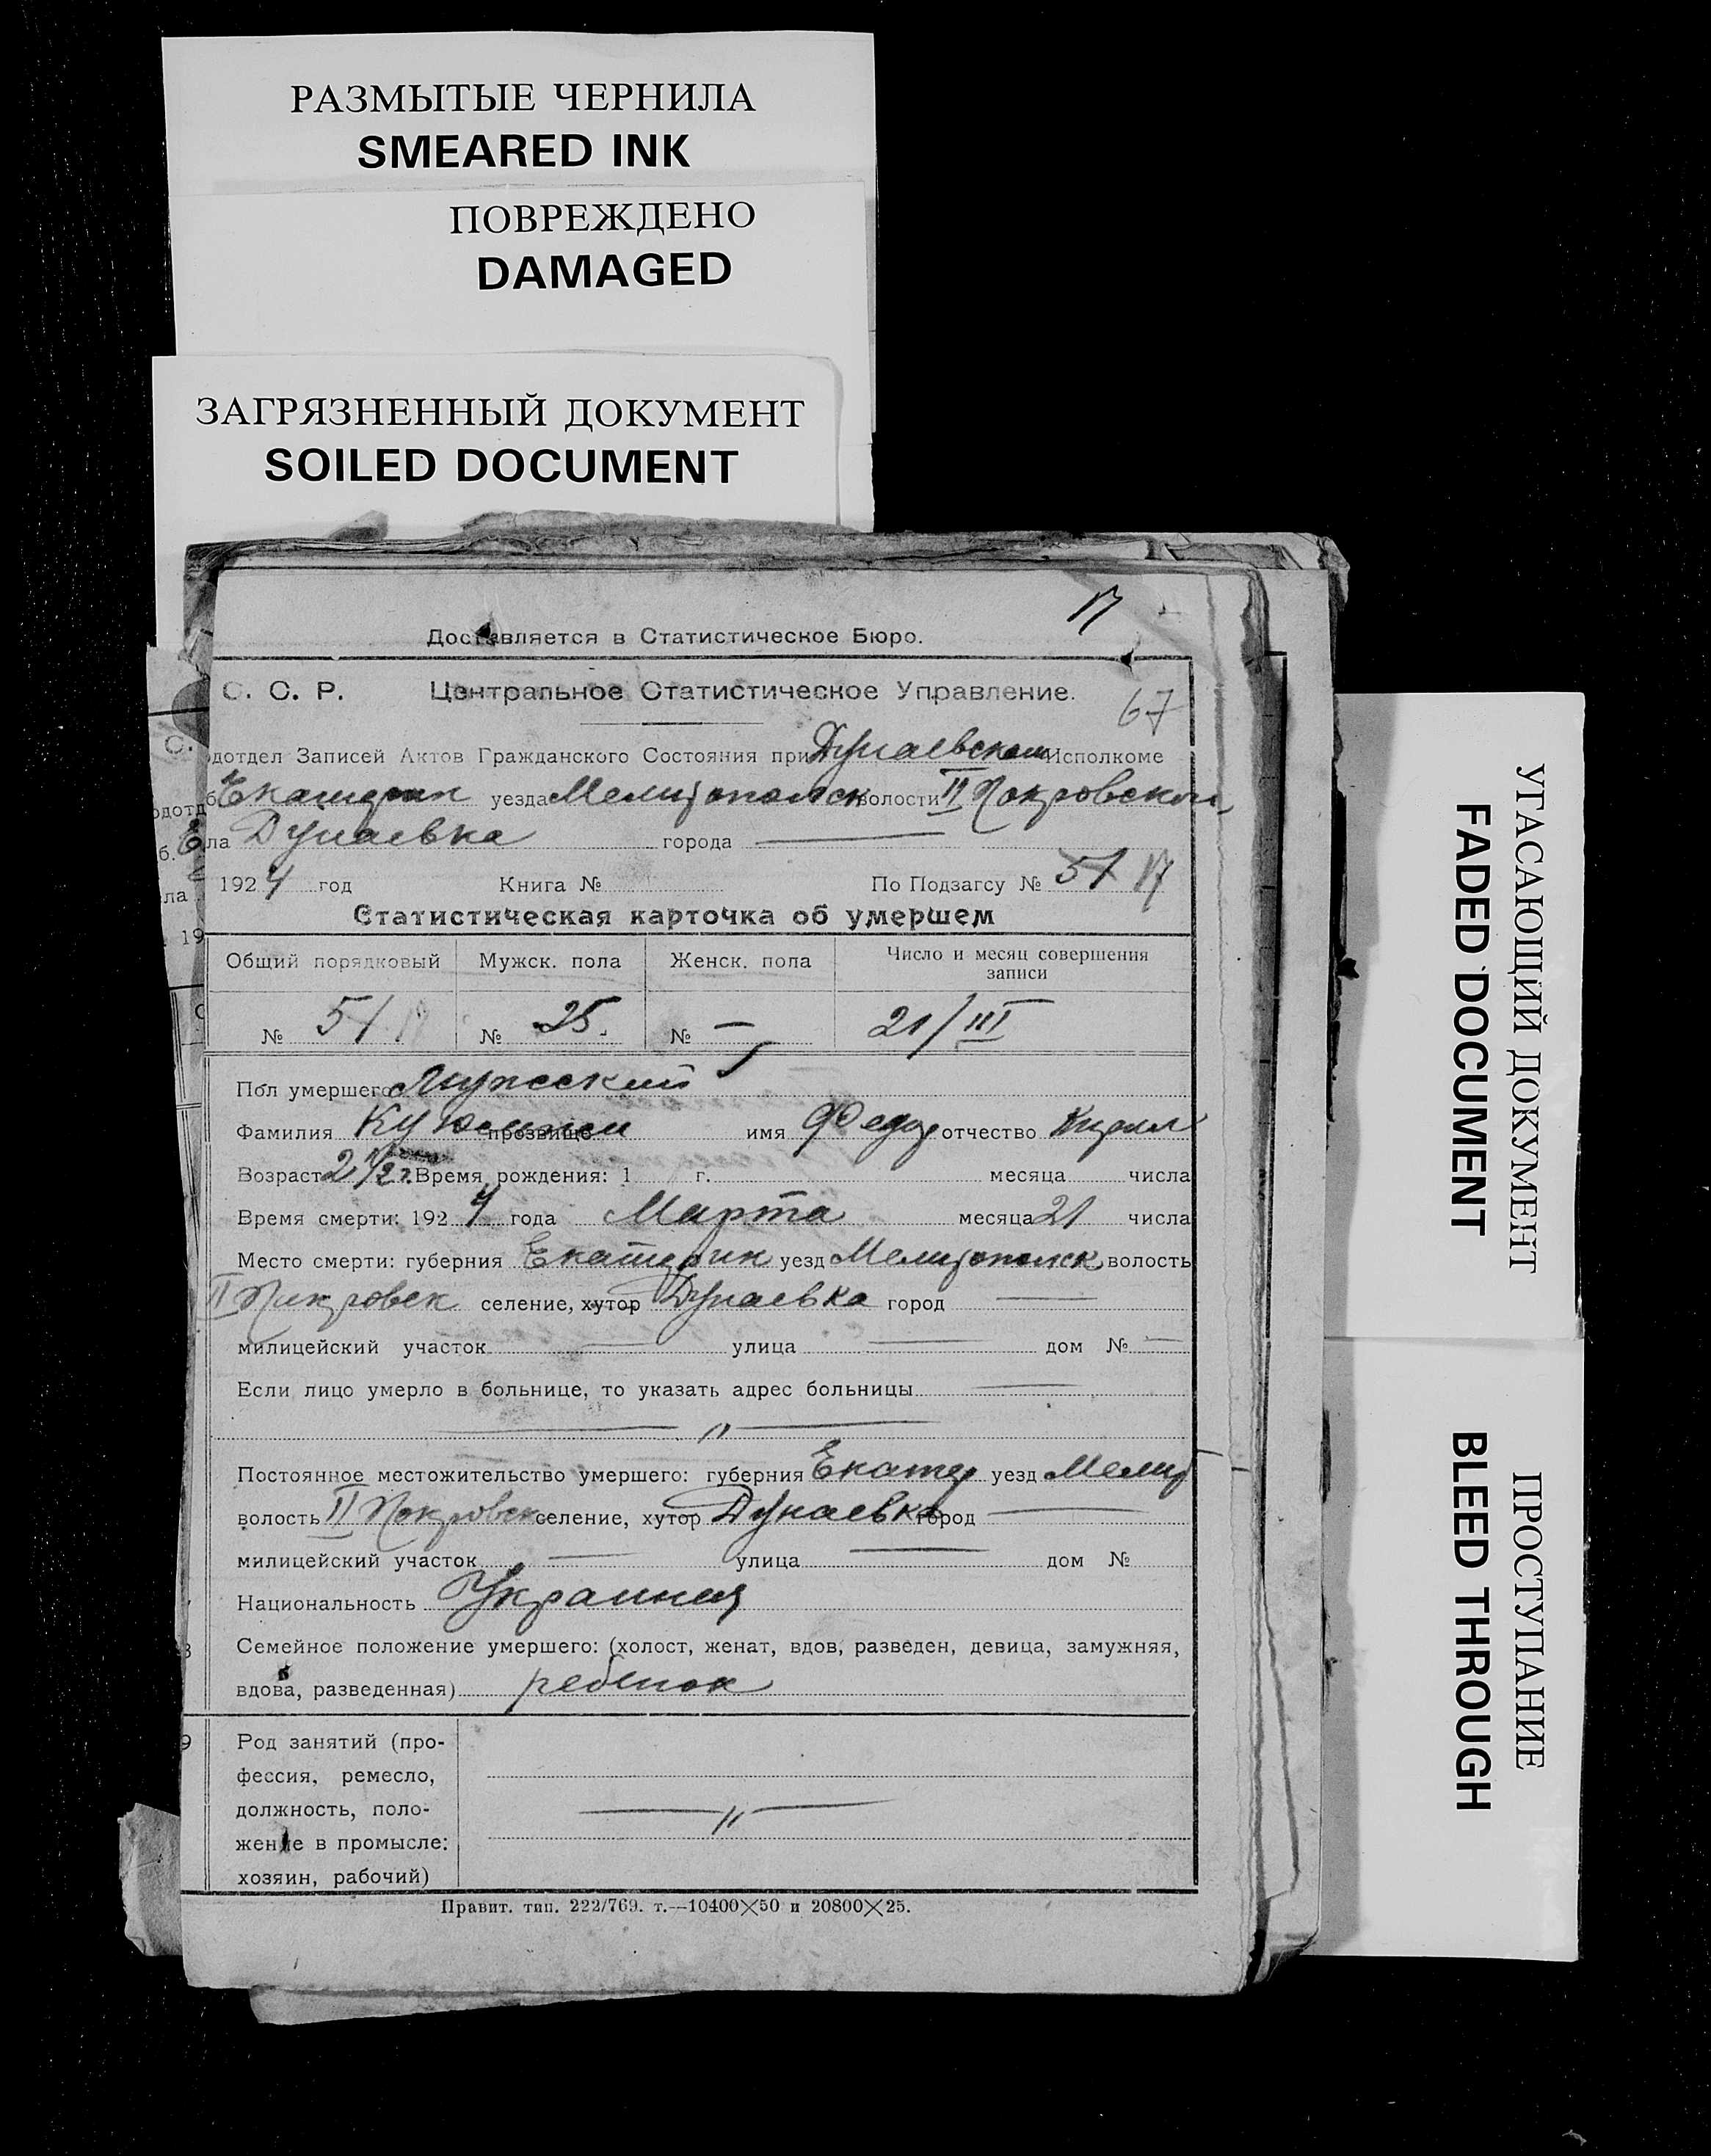 РАЗМЫТЫЕ ЧЕРНИЛА
SMEARED INK
ПОВРЕЖДЕНО
DAMAGED
ЗАГРЯЗНЕННЫЙ ДОКУМЕНТ
SOILED DOCUMENT
17
Доставляется в Статистическое Бюро.
С. С. Р. Центральное Статистическое Управление.
67
одотдел Записей Актов Гражданского Состояния при Дунаевском Исполкоме
б. Екатерин уезда Мелитопольск волости II Покровской
ла Дунаевка города —
1924 год Книга № По Подзагсу № 51 17
Статистическая карточка об умершем
Общий порядковый Мужск. пола Женск. пола Число и месяц совершения записи
№ 51 № 25. № — 21/III
Пол умершего Мужской
Фамилия прозвище имя Федор отчество Кирилл
Возраст 2 1/2 г. Время рождения: 1 г. месяца числа
Время смерти: 1924 года Марта месяца 21 числа
Место смерти: губерния Екатерин уезд Мелитопольск волость
II Покровск селение, хутор Дунаевка город —
милицейский участок — улица — дом № —
Если лицо умерло в больнице, то указать адрес больницы —
— „ —
Постоянное местожительство умершего: губерния Екатер уезд Мелит
волость II Покровск селение, хутор Дунаевка город —
милицейский участок — улица — дом №
Национальность
Семейное положение умершего: (холост, женат, вдов, разведен, девица, замужняя,
вдова, разведенная) ребенок
9 Род занятий (про-
фессия, ремесло,
должность, поло-
жение в промысле: — „ —
хозяин, рабочий)
Правит. тип. 222/769. т.—10400×50 и 20800×25.
УГАСАЮЩИЙ ДОКУМЕНТ
FADED DOCUMENT
ПРОСТУПАНИЕ
BLEED THROUGH